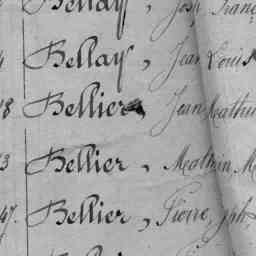 Bellay, José Franç
Bellay, Jean Louis
8 Bellier, Jean Mathur
3 Bellier, Mathurin M
47. Bellier, Pierre, Jph